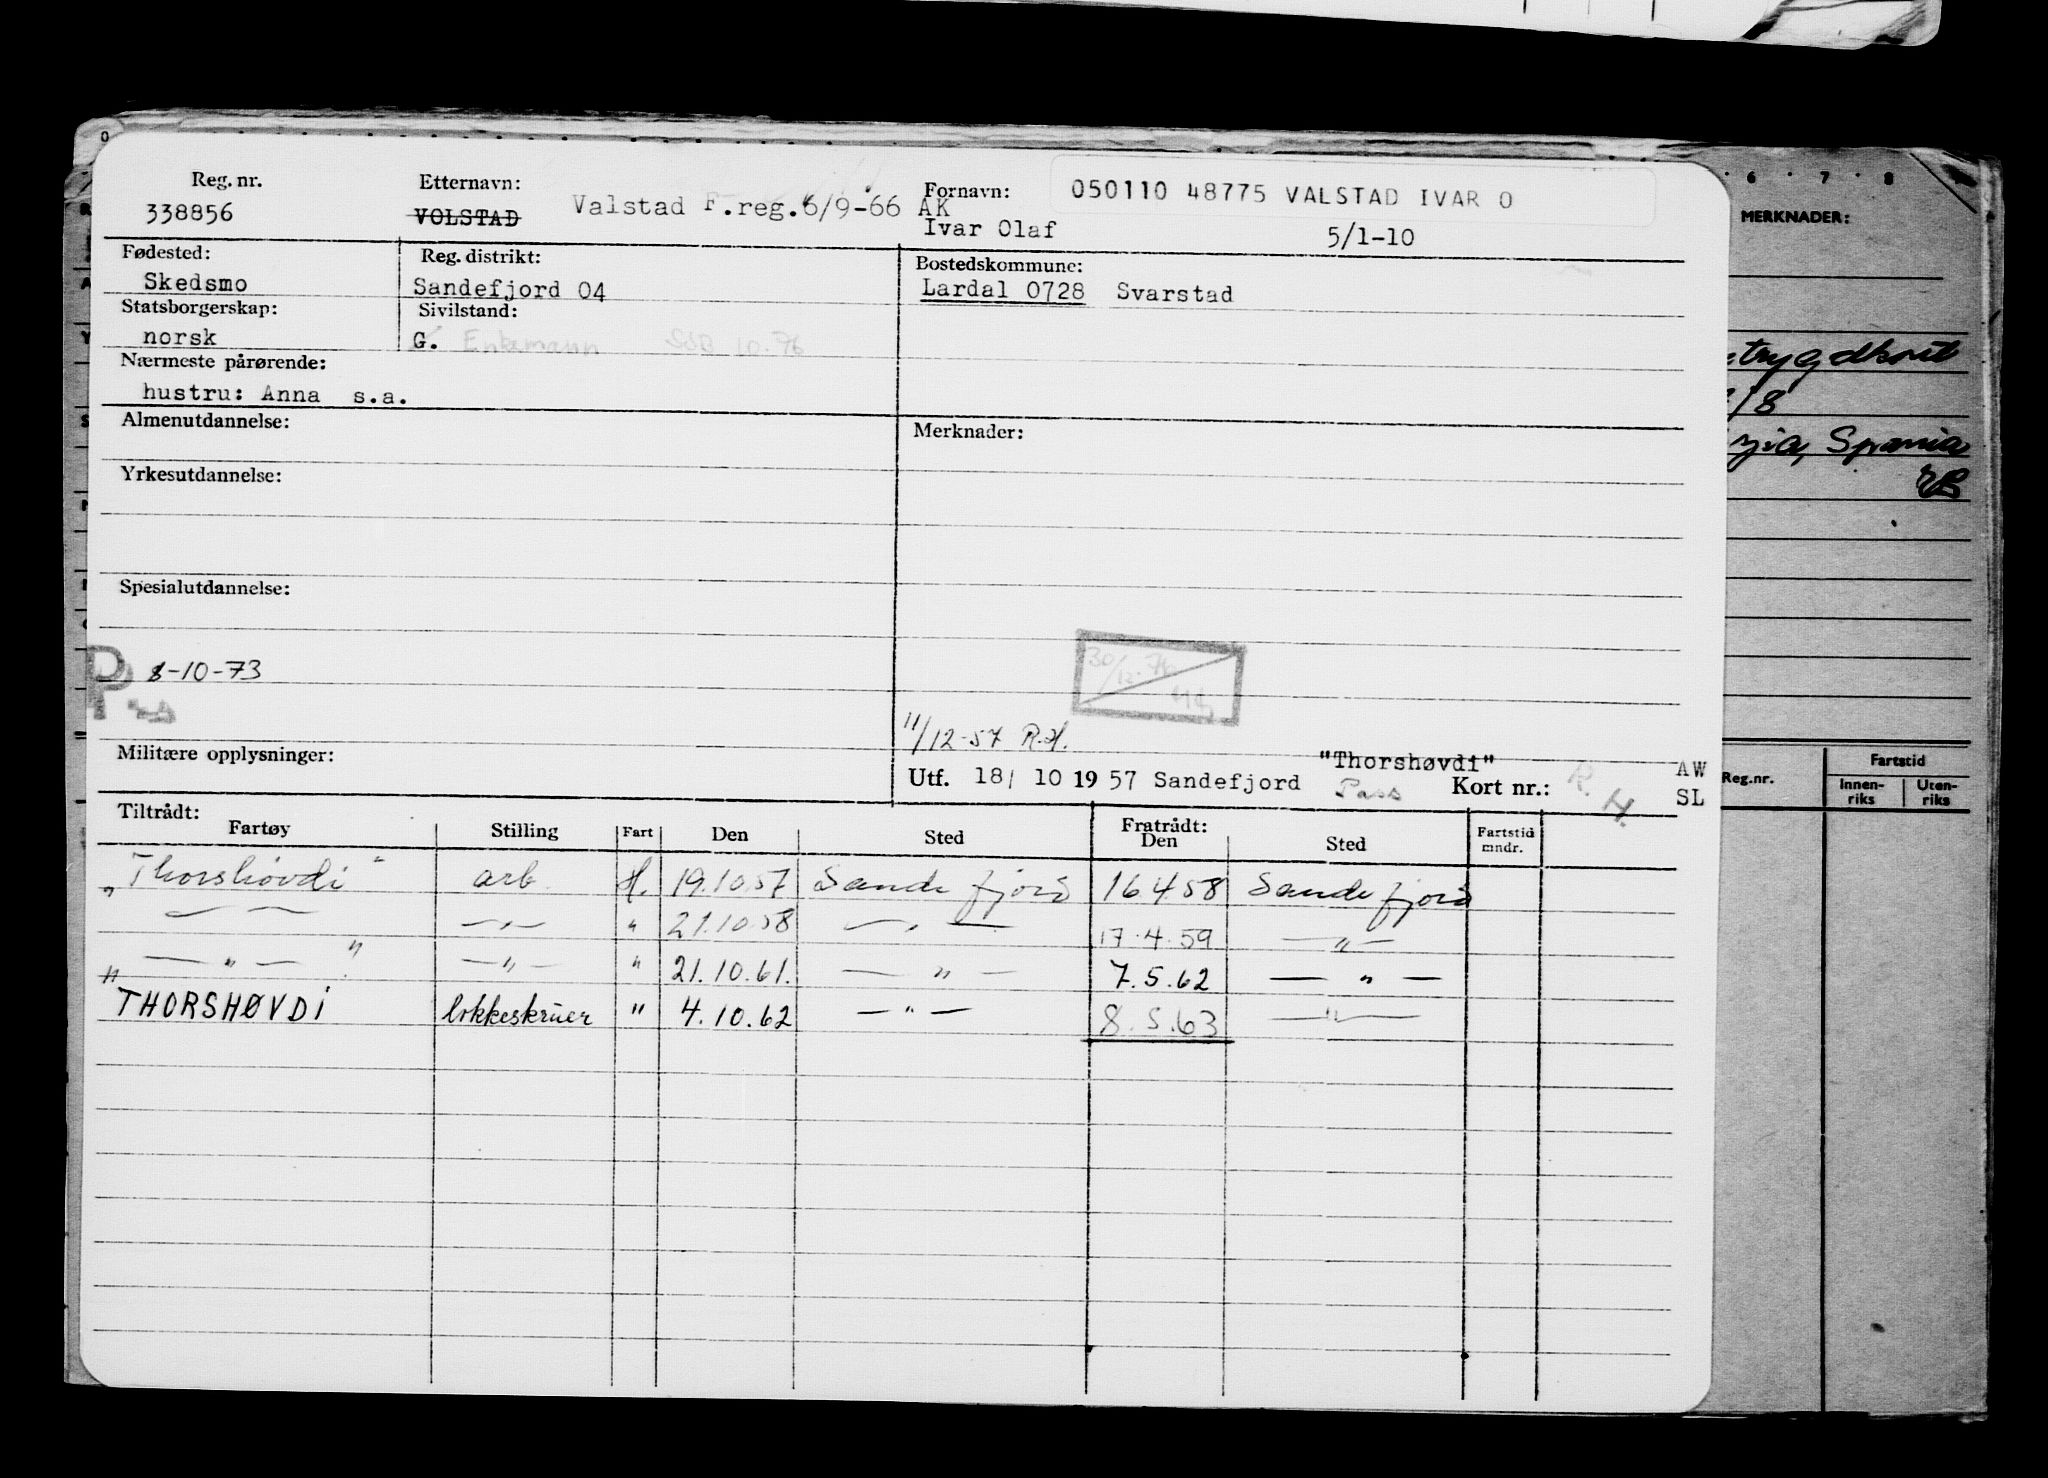 Reg. nr. Etternavn: Fornavn: 050110 48775 VALSTAD IVAR O
338856 VOLSTAD Valstad F.reg.6/9-66 AK Ivar Olaf 5/1-10
Fødested: Reg. distrikt: Bostedskommune:
Skedsmo Sandefjord 04 Lardal 0728 Svarstad
Statsborgerskap: Sivilstand:
norsk G. Enkemann SSB 10-76
Nærmeste pårørende:
hustru: Anna s.a.
Almenutdannelse: Merknader:
Yrkesutdannelse:
Spesialutdannelse:
P 8-10-73
30/12-76
11/12-57 R.H.
Militære opplysninger: "Thorshøvdi"
Utf. 18/ 10 1957 Sandefjord Pass Kort nr.: R.H. AW
SL
Tiltrådt: Fratrådt:
Fartøy Stilling Fart Den Sted Den Sted Fartstid mndr.
"Thorshøvdi" arb. H. 19.10.57 Sandefjord 16.4.58 Sandefjord
— " — — " — " 21.10.58 — " — 17.4.59 — " —
" — " — " — " — " 21.10.61. — " — 7.5.62 — " —
"THORSHØVDI lokkeskruer " 4.10.62 — " — 8.5.63 — " —
6 · 7 · 8
MERKNADER:
/8
Spania
Reg.nr. Fartstid
Innen-riks Uten-riks